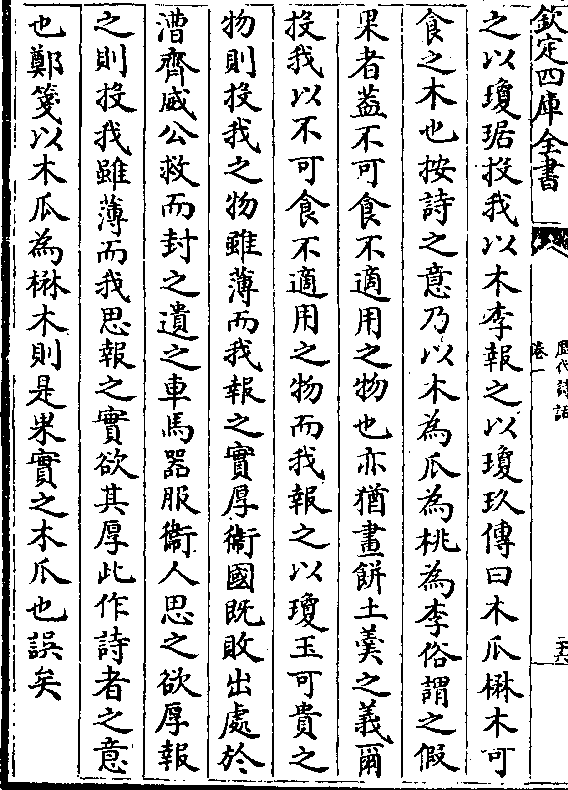 欽定四庫全書
歷代詩話
卷一
之以瓊琚投我以木李報之以瓊玖傳曰木瓜楙木可
食之木也按詩之意乃以木為瓜為桃為李俗謂之假
果者葢不可食不適用之物也亦猶畫餅土羮之義爾
投我以不可食不適用之物而我報之以瓊玉可貴之
物則投我之物雖薄而我報之實厚衞國既敗出處於
漕齊威公救而封之遺之車馬器服衞人思之欲厚報
之則投我雖薄而我思報之實欲其厚此作詩者之意
也鄭箋以木瓜為楙木則是果實之木瓜也誤矣